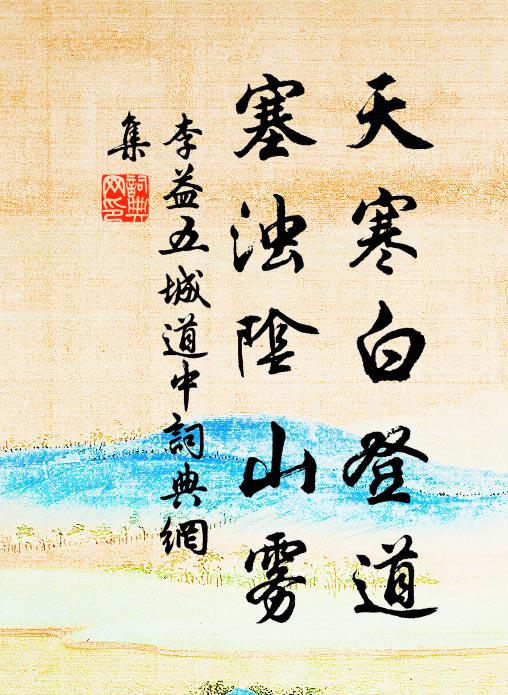 天寒白登道
塞浊陰山雾
李益五城道中詞典網
集
詞典
网印